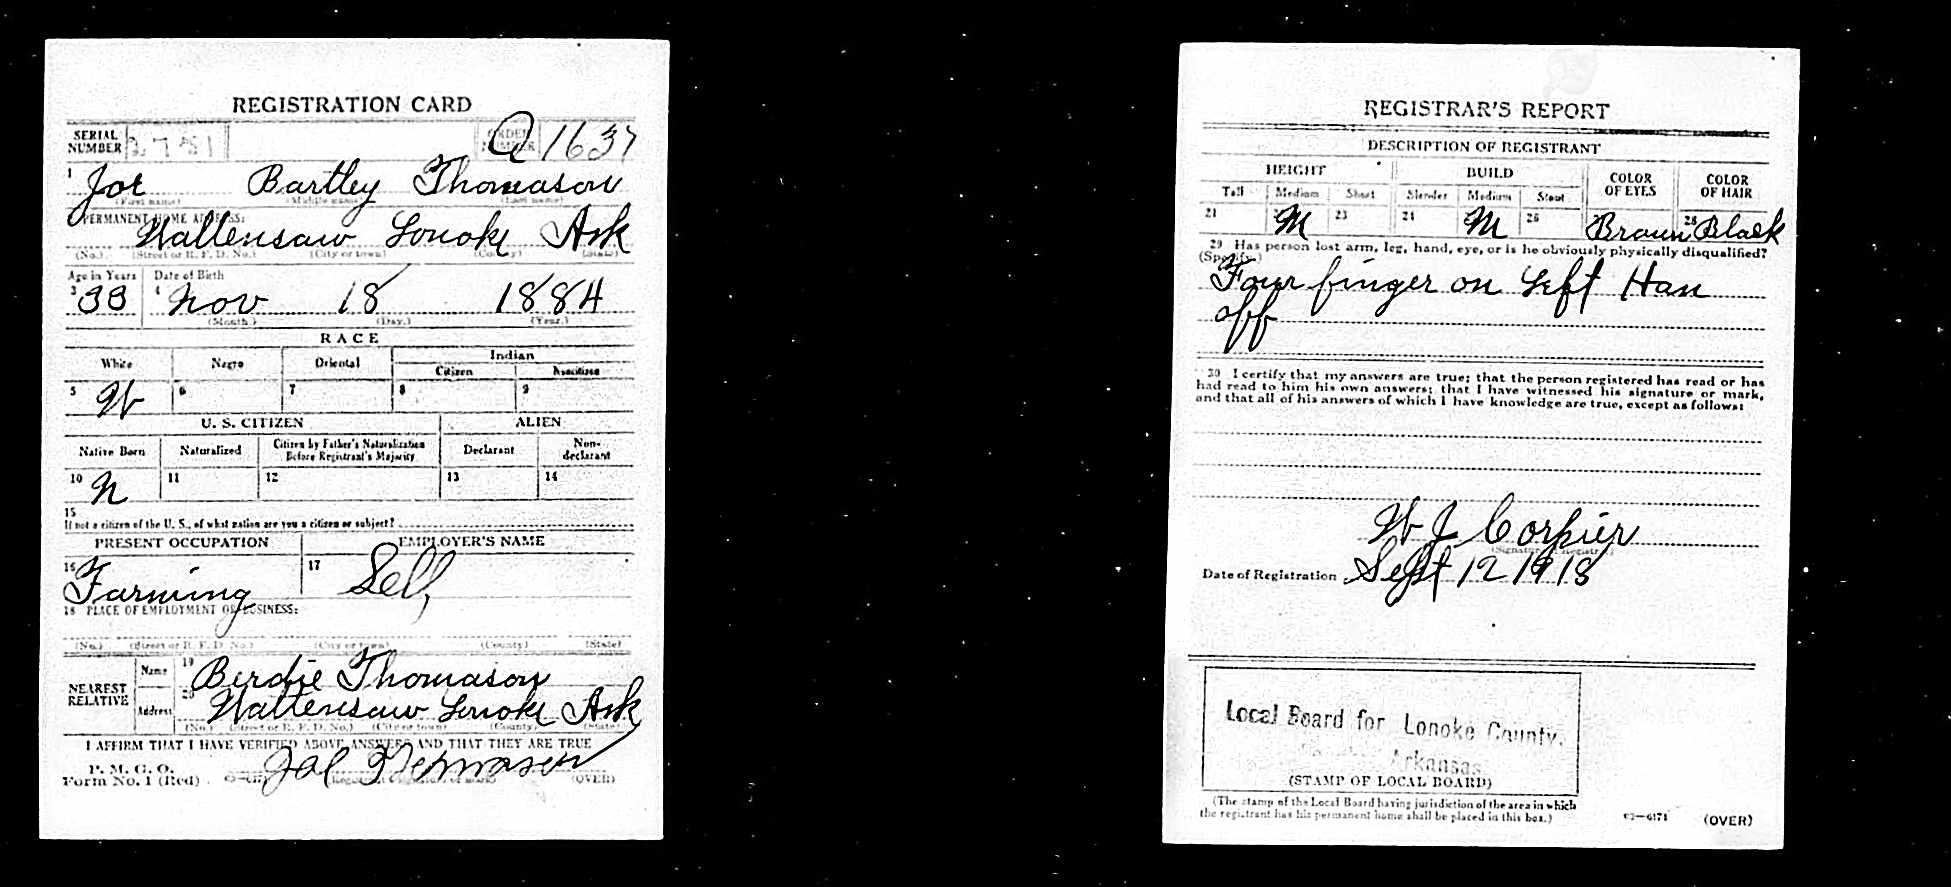 REGISTRATION CARD
SERIAL NUMBER ORDER NUMBER A 1637
1 Joe Bartley Thomason
(First name) (Middle name) (Last name)
PERMANENT HOME ADDRESS:
Wattensaw Lonoke Ark
(No.) (Street or R. F. D. No.) (City or town) (County) (State)
Age in Years Date of Birth
3 33 4 Nov 18 1884
(Month.) (Day.) (Year.)
RACE
White Negro Oriental Indian
Citizen Noncitizen
5 W 6 7 8 9
U. S. CITIZEN ALIEN
Native Born Naturalized Citizen by Father's Naturalization Before Registrant's Majority Declarant Non-declarant
10 N 11 12 13 14
15
If not a citizen of the U. S., of what nation are you a citizen or subject?
PRESENT OCCUPATION EMPLOYER'S NAME
16 Farming 17 Self
18 PLACE OF EMPLOYMENT OR BUSINESS:
(No.) (Street or R. F. D. No.) (City or town) (County) (State)
NEAREST RELATIVE Name 19 Berdie Thomason
Address 20 Wattensaw Lonoke Ark
(No.) (Street or R. F. D. No.) (City or town) (County) (State)
I AFFIRM THAT I HAVE VERIFIED ABOVE ANSWERS AND THAT THEY ARE TRUE
P. M. G. O.
Form No. 1 (Red) Joe Thomason (OVER)
REGISTRAR'S REPORT
DESCRIPTION OF REGISTRANT
HEIGHT BUILD COLOR OF EYES COLOR OF HAIR
Tall Medium Short Slender Medium Stout
21 M 23 24 M 26 Brown 28 Black
29 Has person lost arm, leg, hand, eye, or is he obviously physically disqualified?
(Specify.)
Four finger on Left Han
off
30 I certify that my answers are true; that the person registered has read or has
had read to him his own answers; that I have witnessed his signature or mark,
and that all of his answers of which I have knowledge are true, except as follows:
W J Corpier
(Signature of Registrar)
Date of Registration Sept 12 1918
Local Board for Lonoke County,
Arkansas
(STAMP OF LOCAL BOARD)
(The stamp of the Local Board having jurisdiction of the area in which
the registrant has his permanent home shall be placed in this box.)
(OVER)